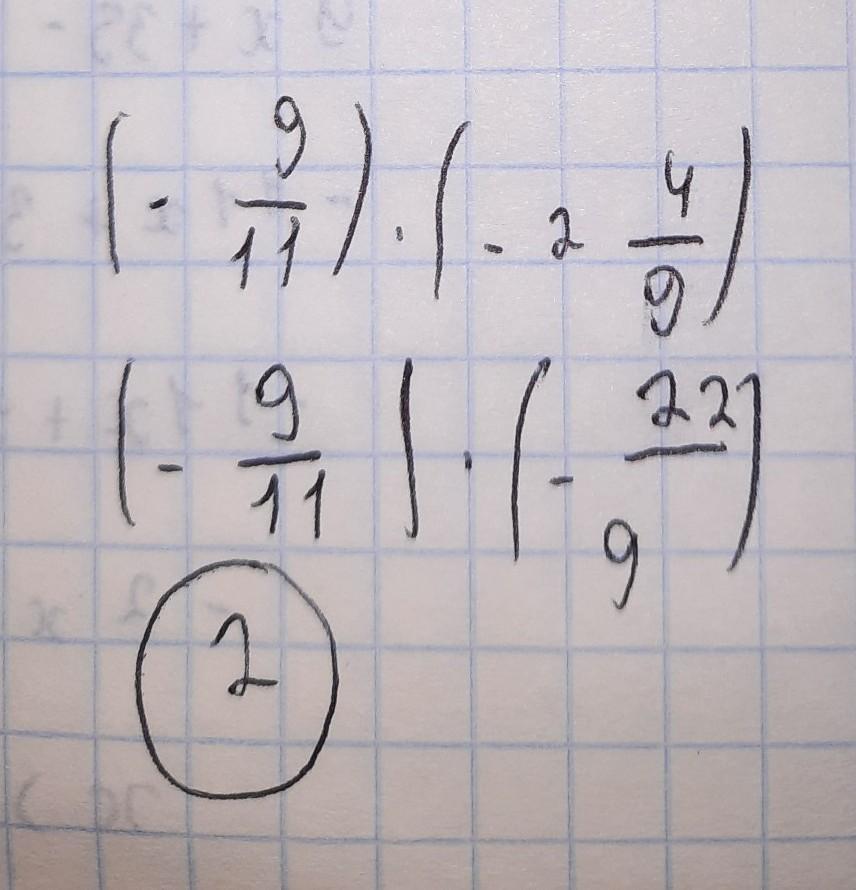 (- 9/11) · (- 2 4/9)
(- 9/11) · (- 22/9)
2